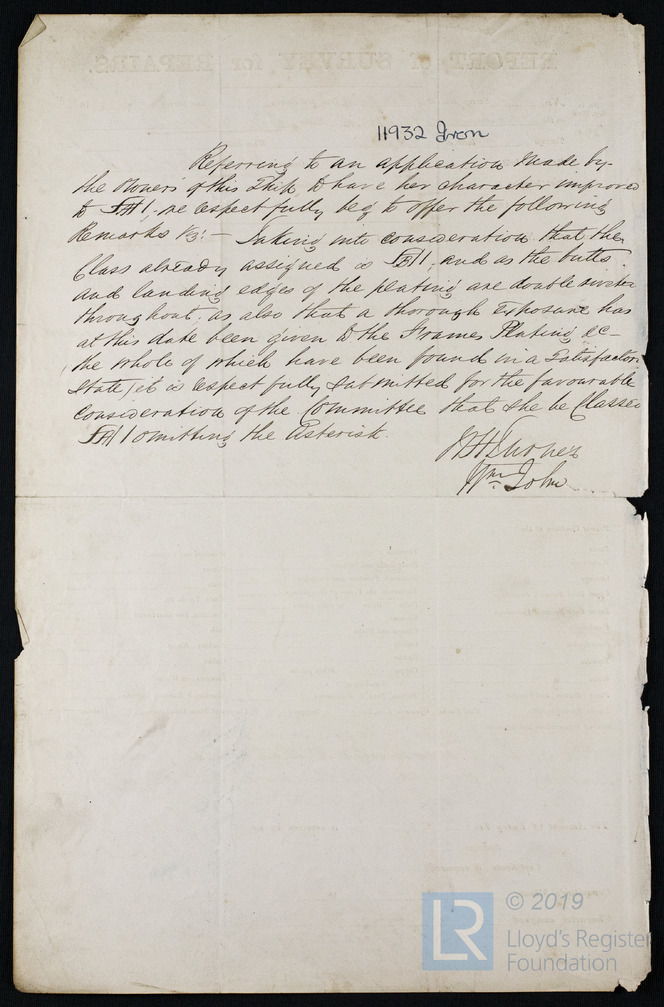 REPORT of SURVEY for REPAIRS.
11932 Iron
Referring to an application made by
the Owners of this Ship to have her character improved
to A1, respectfully beg to offer the following
Remarks Viz: - Taking into consideration that the
Class already assigned is A1, and as the butts
and landing edges of the plating are double rivetted
throughout, as also that a thorough exposure has
at this date been given to the Frames Plating &c -
the whole of which have been found in a Satisfactory
State, it is respectfully submitted for the favourable
consideration of the Committee that she be Classed
A1 omitting the Asterisk.
Wm John
© 2019
LR
Lloyd's Register
Foundation